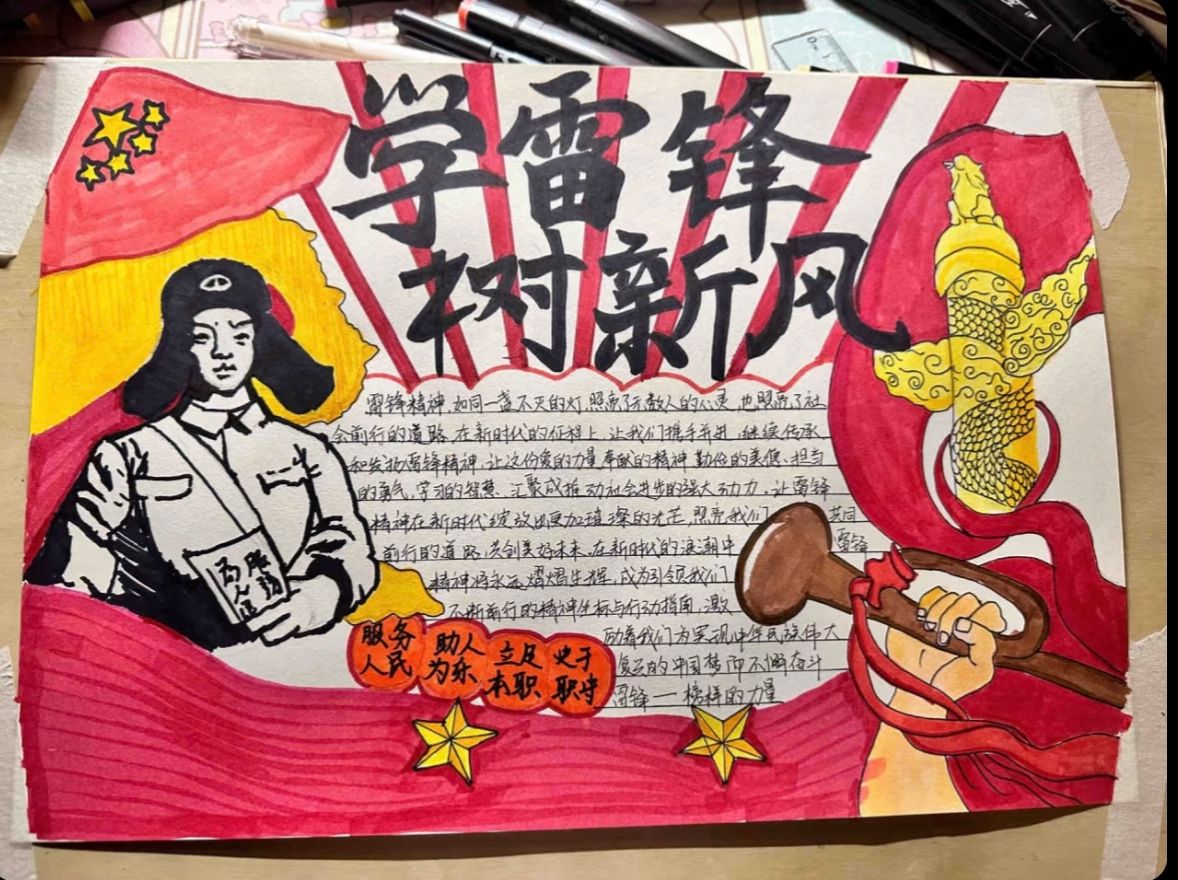 学雷锋
树新风
雷锋精神,如同一盏不灭的灯,照亮了无数人的心灵,也照亮了社
会前行的道路,在新时代的征程上,让我们携手并进,继续传承
和发扬雷锋精神,让这份爱的力量奉献的精神勤俭的美德、担当
的勇气,学习的智慧、汇聚成推动社会进步的强大动力,让雷锋
精神在新时代绽放出更加璀璨的光芒,照亮我们 共同
前行的道路,共创美好未来,在新时代的浪潮中 雷锋
精神将永远熠熠生辉,成为引领我们
不断前行的精神坐标与行动指南,激
励着我们为实现中华民族伟大
复兴的中国梦而不懈奋斗
雷锋——榜样的力量
服务 助人 立足 忠于
人民 为乐 本职 职守
为人